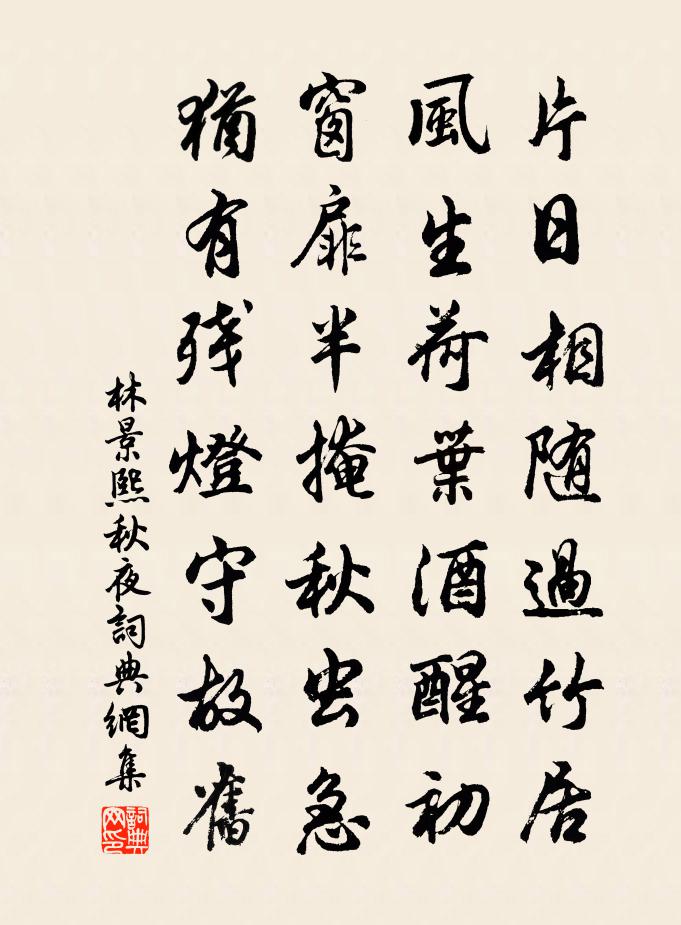 片日相随過竹居
風生荷葉酒醒初
窗扉半掩秋虫急
猶有残燈守故舊
林景熙秋夜詞典網集
詞典网印